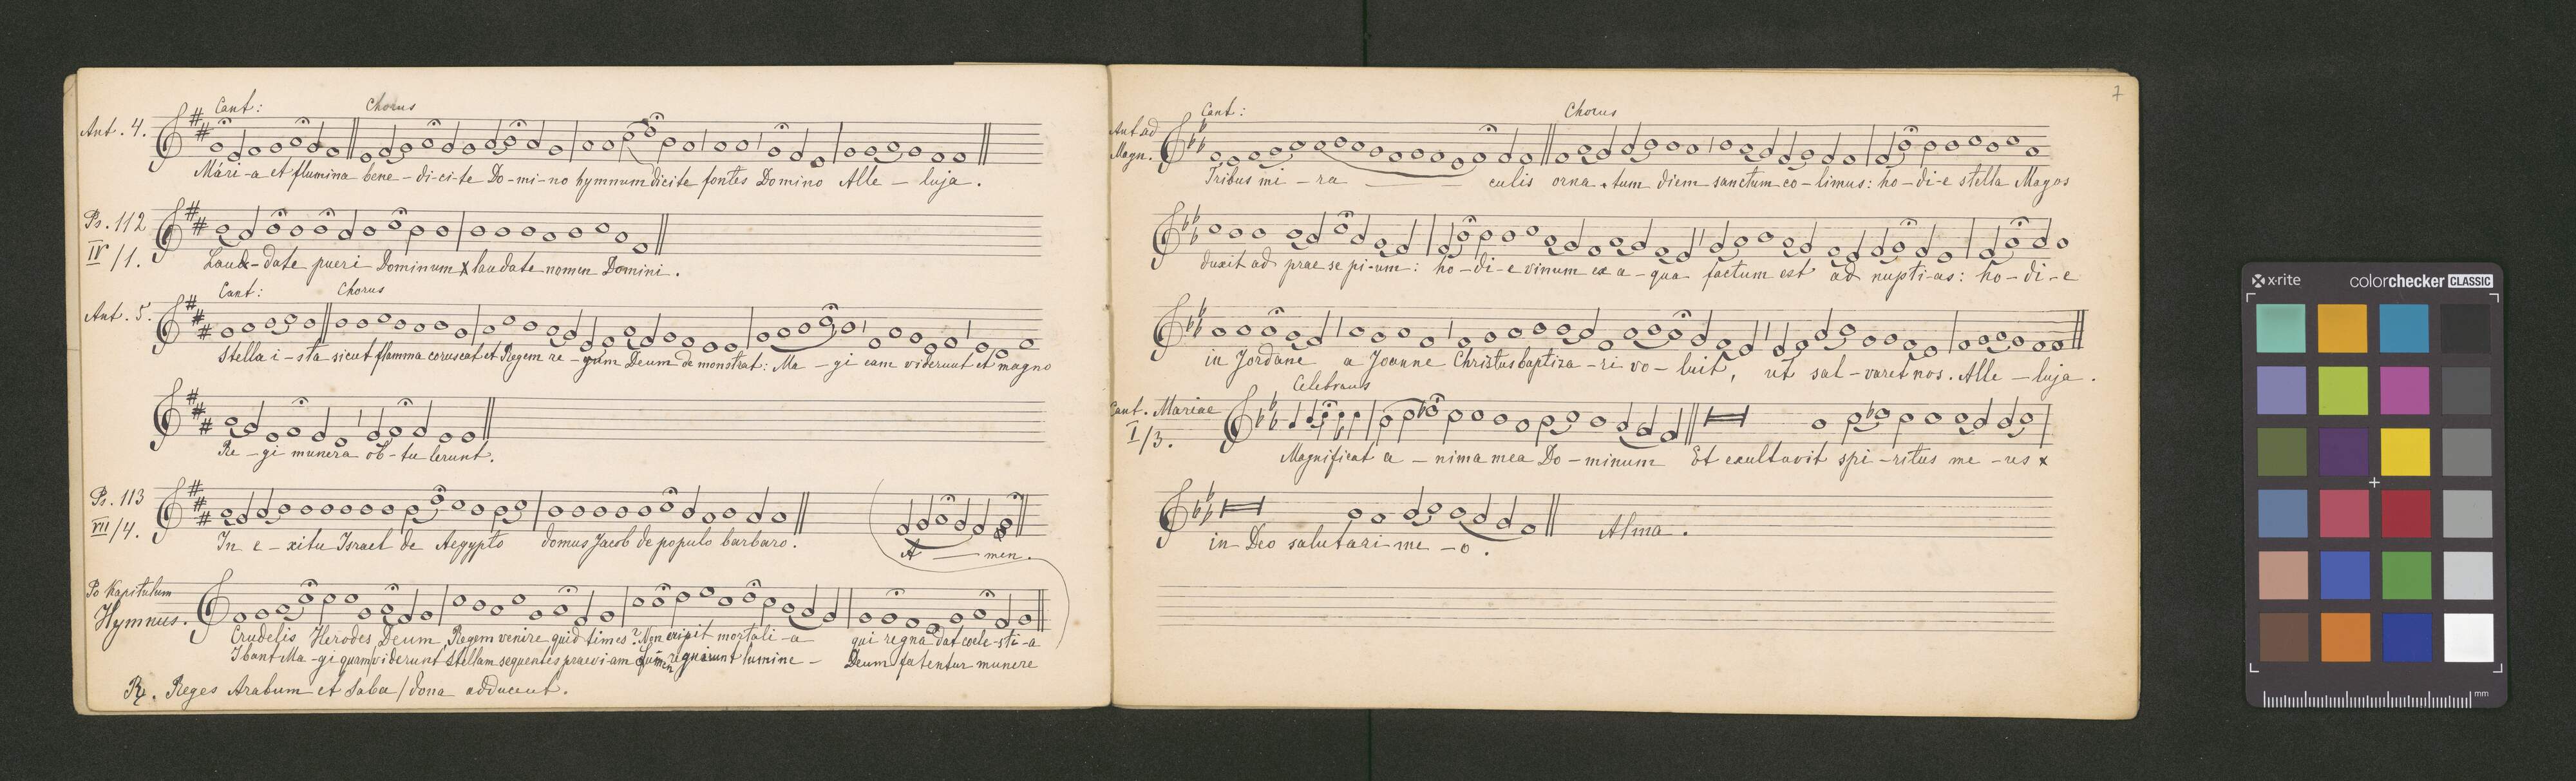 Cant: Chorus
Ant. 4.
Mari-a et flumina bene-di-ci-te Do-mi-no hymnum dicite fontes Domino Alle-luja.
Ps. 112
IV/1.
Laud-date pueri Dominum x laudate nomen Domini.
Cant: Chorus
Ant. 5.
Stella i-sta sicut flamma coruscat et Regem re-gum Deum de monstrat: Ma-gi eam viderunt et magno
Re-gi munera ob-tu lerunt.
Ps. 113
VII/4.
In e-xitu Israel de Aegypto domus Jacob de populo barbaro. A-men.
Po Kapitulum
Hymnus.
Crudelis Herodes Deum, Regem venire quid times? Non eripit mortali-a qui regna dat coele-sti-a
Ibant Ma-gi quam viderunt, Stellam sequentes praevi-am requirunt lumine- Deum fatentur munere
℟. Reges Arabum et Saba / dona adducent.
7
Cant: Chorus
Ant. ad
Magn.
Tribus mi-ra-culis orna-tum diem sanctum co-limus: ho-di-e stella Magos
duxit ad prae se pi-um: ho-di-e vinum ex a-qua factum est ad nupti-as: ho-di-e
in Jordane a Joanne Christus baptiza-ri vo-luit, ut sal-varet nos. Alle-luja.
Celebrans
Cant. Mariae
I/3.
Magnificat a-nima mea Do-minum Et exultavit spi-ritus me-us x
in Deo salutari me-o. Alma.
x·rite colorchecker CLASSIC
mm